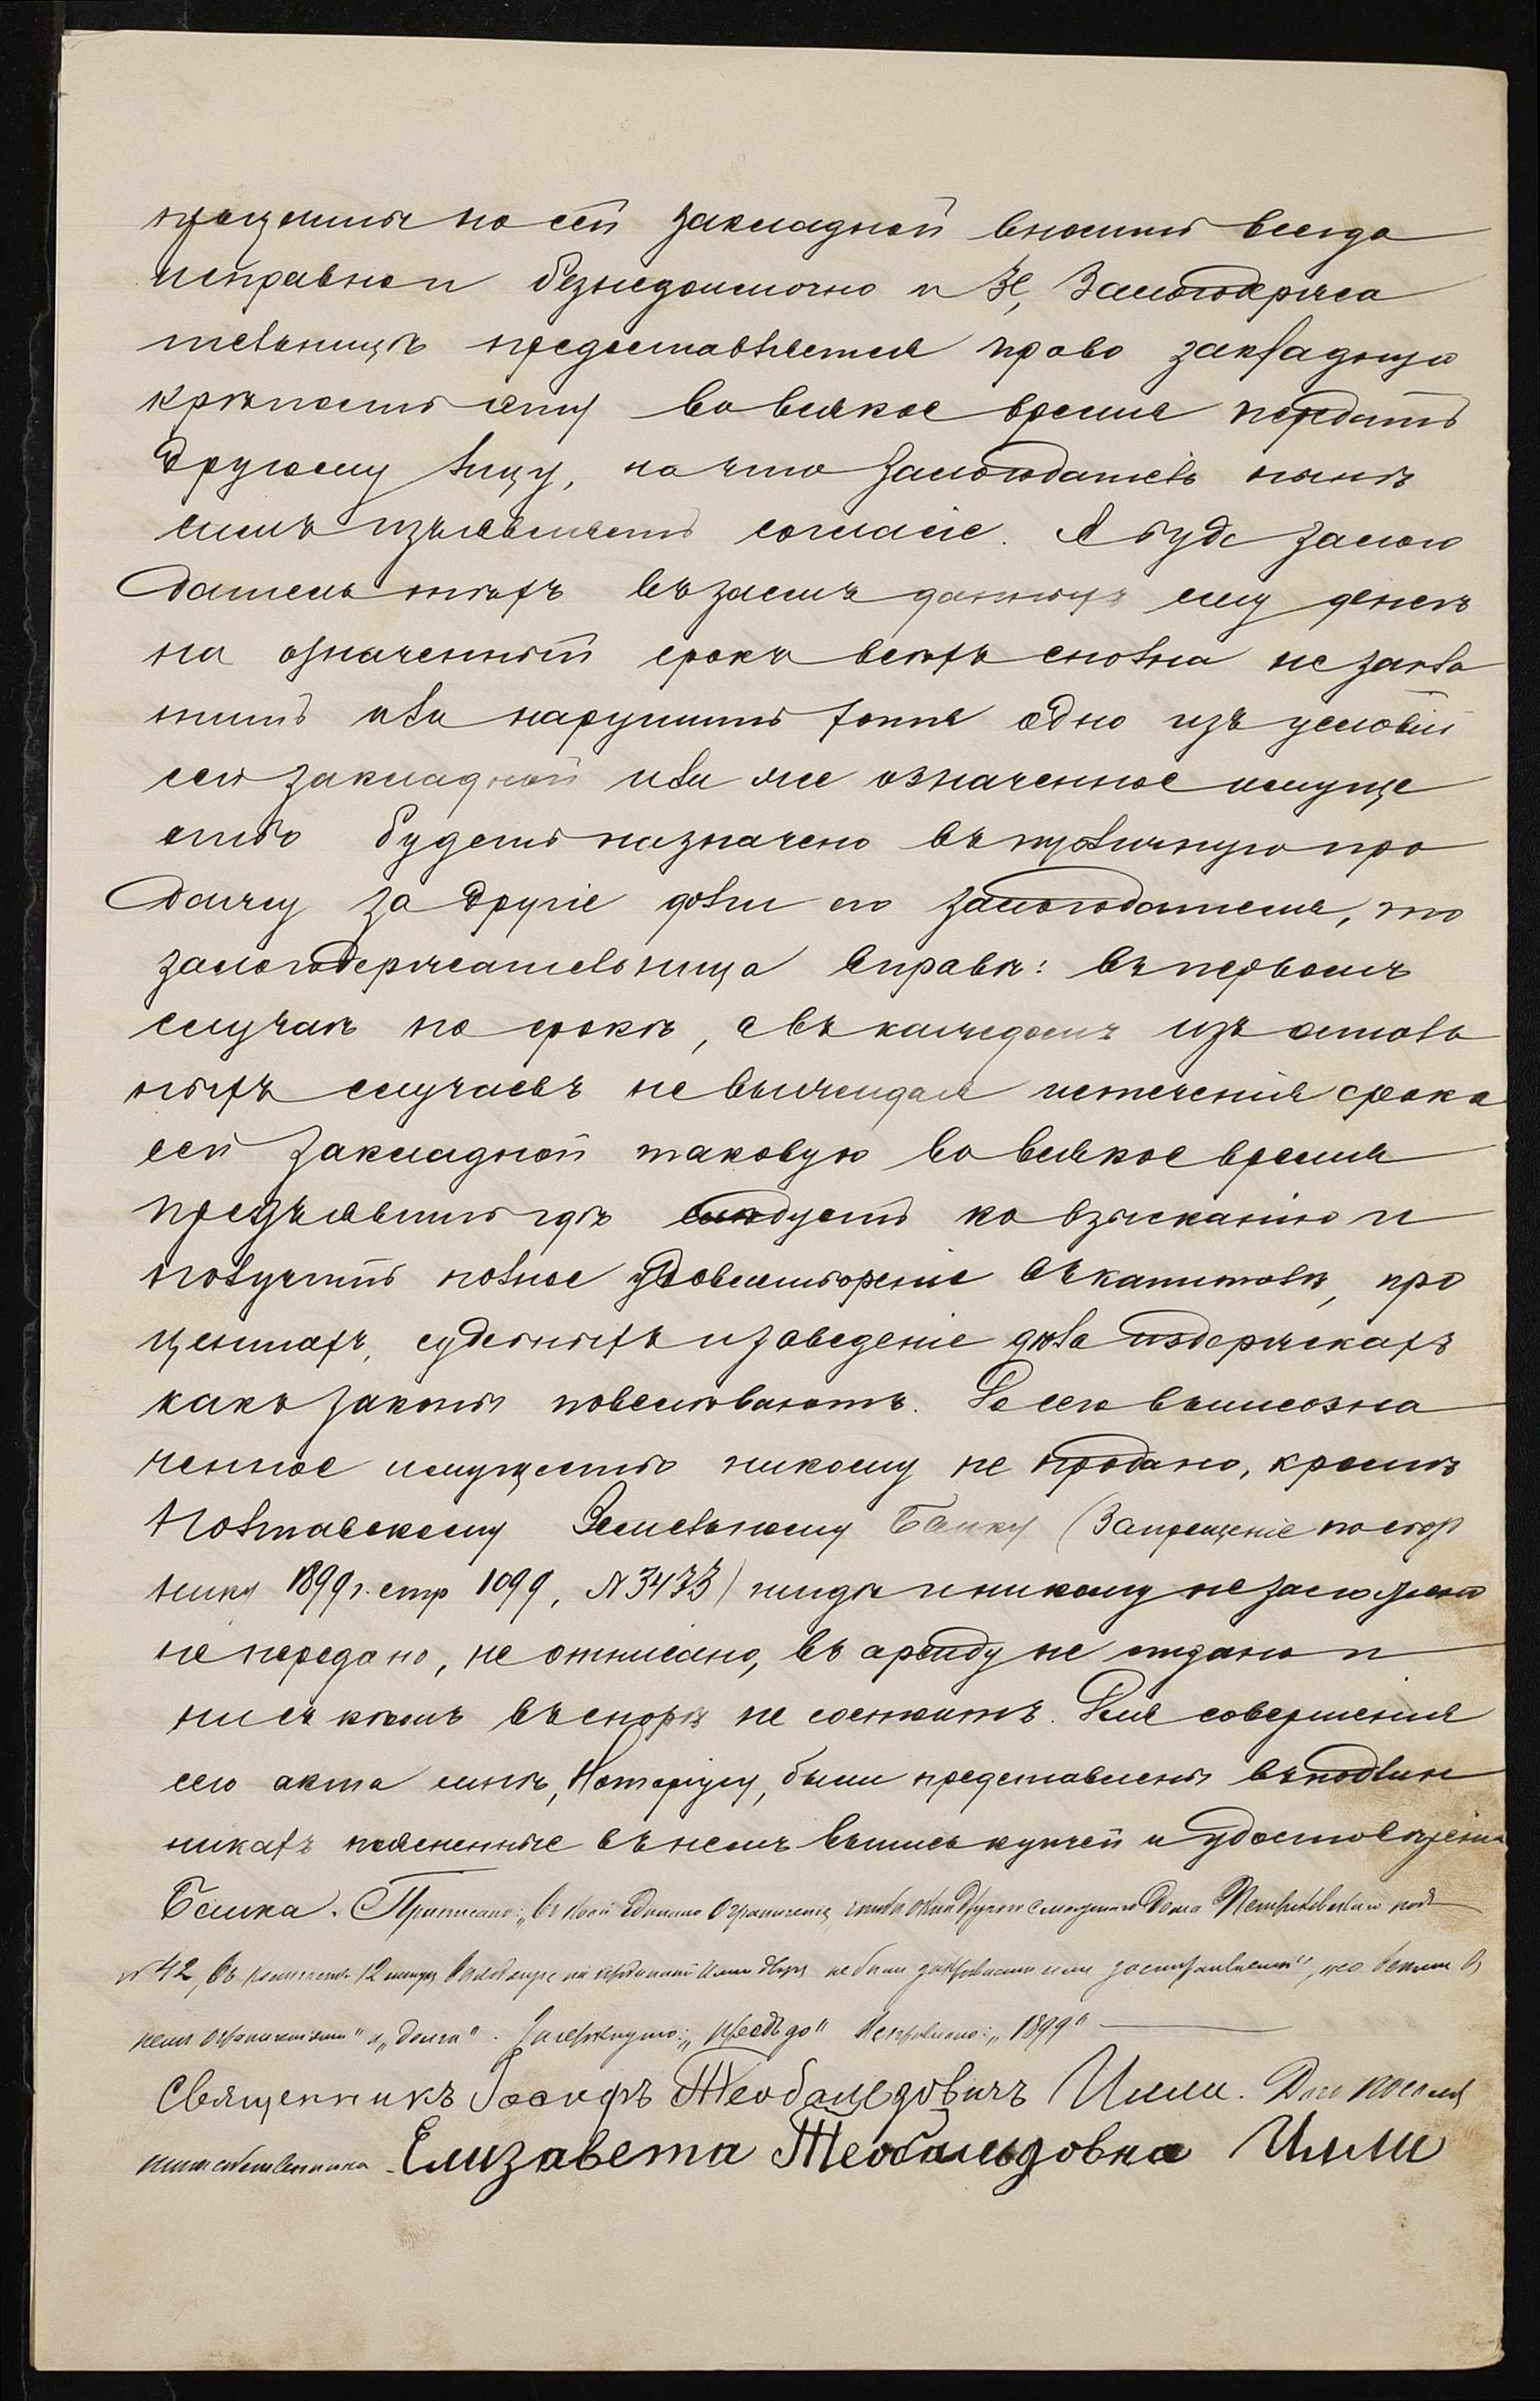 проценты по сей закладной вносить всегда
исправно и безнедоимочно и 3е, Залогодержа
тельницѣ предоставляется право закладную
крѣпость эту во всякое время передать
другому лицу, на что залогодатель нынѣ
симъ изъявляетъ согласіе. А буде залого
датель тѣхъ въ заемъ данныхъ ему денегъ
на означенный срокъ всѣхъ сполна не запла
титъ или нарушитъ хотя одно изъ условій
сей закладной или же означенное имуще
ство будетъ назначено въ публичную про
дажу за другіе долги его залогодателя, то
залогодержательница вправѣ: въ первомъ
случаѣ по срокѣ, а въ каждомъ изъ осталь
ныхъ случаевъ не выжидая истеченія срока
сей закладной таковую во всякое время
предъявить гдѣ слѣдуетъ ко взысканію и
получить полное удовлетвореніе въ капиталѣ, про
центахъ, судебныхъ и за веденіе дѣла издержкахъ
какъ законы повелѣваютъ. До сего вышеозна
ченное имущество никому не продано, кромѣ
Полтавскому Земельному Банку (Запрещеніе по сбор
нику 1899 г. стр 1099, № 3473) нигдѣ и никому не заложено
не передано, не отписано, въ аренду не отдано и
ни съ кѣмъ въ спорѣ не состоитъ. Для совершенія
сего акта мнѣ, Нотаріусу, были представлены въ подлин
никахъ поясненные въ немъ выпись купчей и удостовѣреніе
Банка. Приписано: „въ
№ 42, въ 12 не были
и „долги“. Зачеркнуто: „ Исправлено: „1899“
Священникъ Іосифъ Теобальдовичъ Илли. Домо
Елизавета Теобальдовна Илли